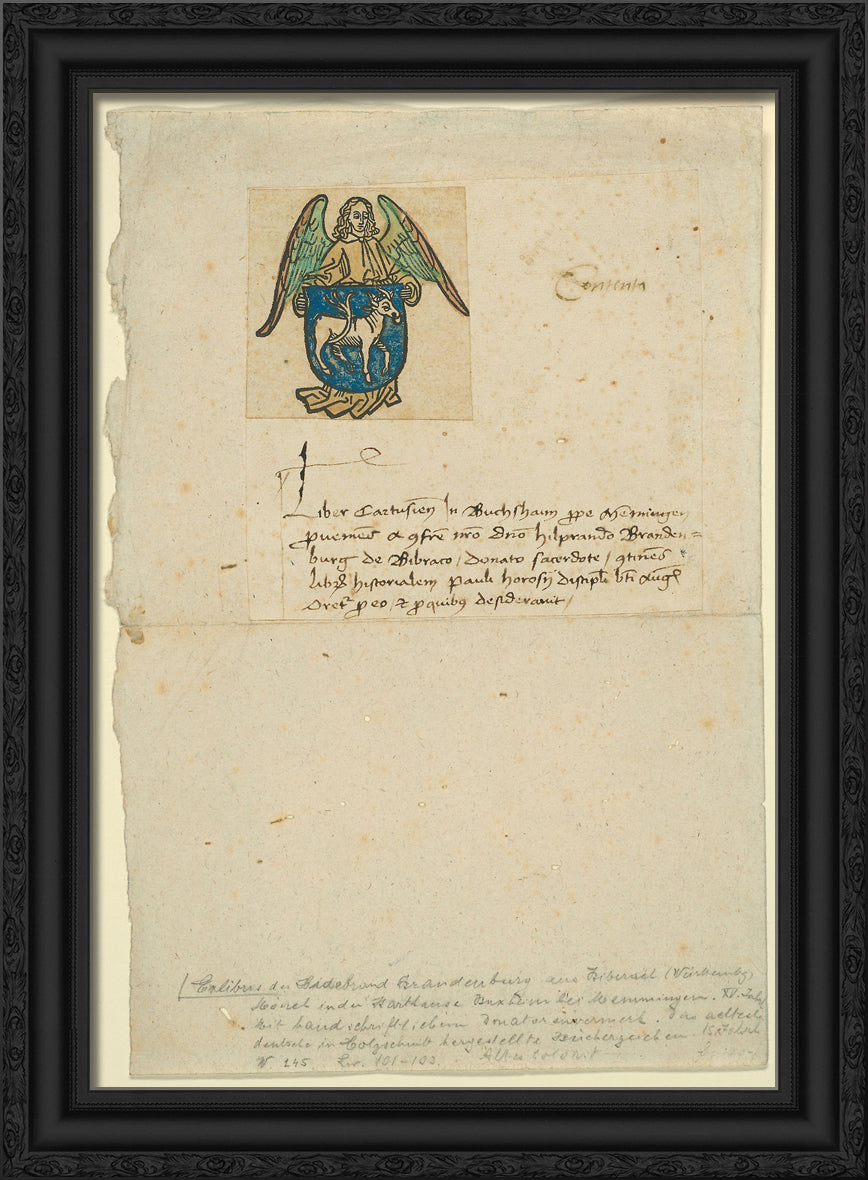 Contenta
Liber Cartusien̄ In Buchshaim ꝓpe Mēmingen
ꝓueniēs a ꝯfrē nr̄o dn̄o hilprando Branden=
burg de Bibraco / donato sacerdote / ꝯtinēs
historialem Pauli horosij discipli bt̄i Aug
Oret ꝓ eo / et ꝓ quibus desiderauit /
Exlibris des Hildebrand Brandenburg aus Biberach (Württembg)
Mönch in der Karthause Buxheim bei Memmingen. XV. Jahr
Mit handschriftlichem Donatorenvermerk. Das aelteste
deutsche in Holzschnitt hergestellte Bücherzeichen. 15 Jahrh
W 245. 101-103. Altes Colorit